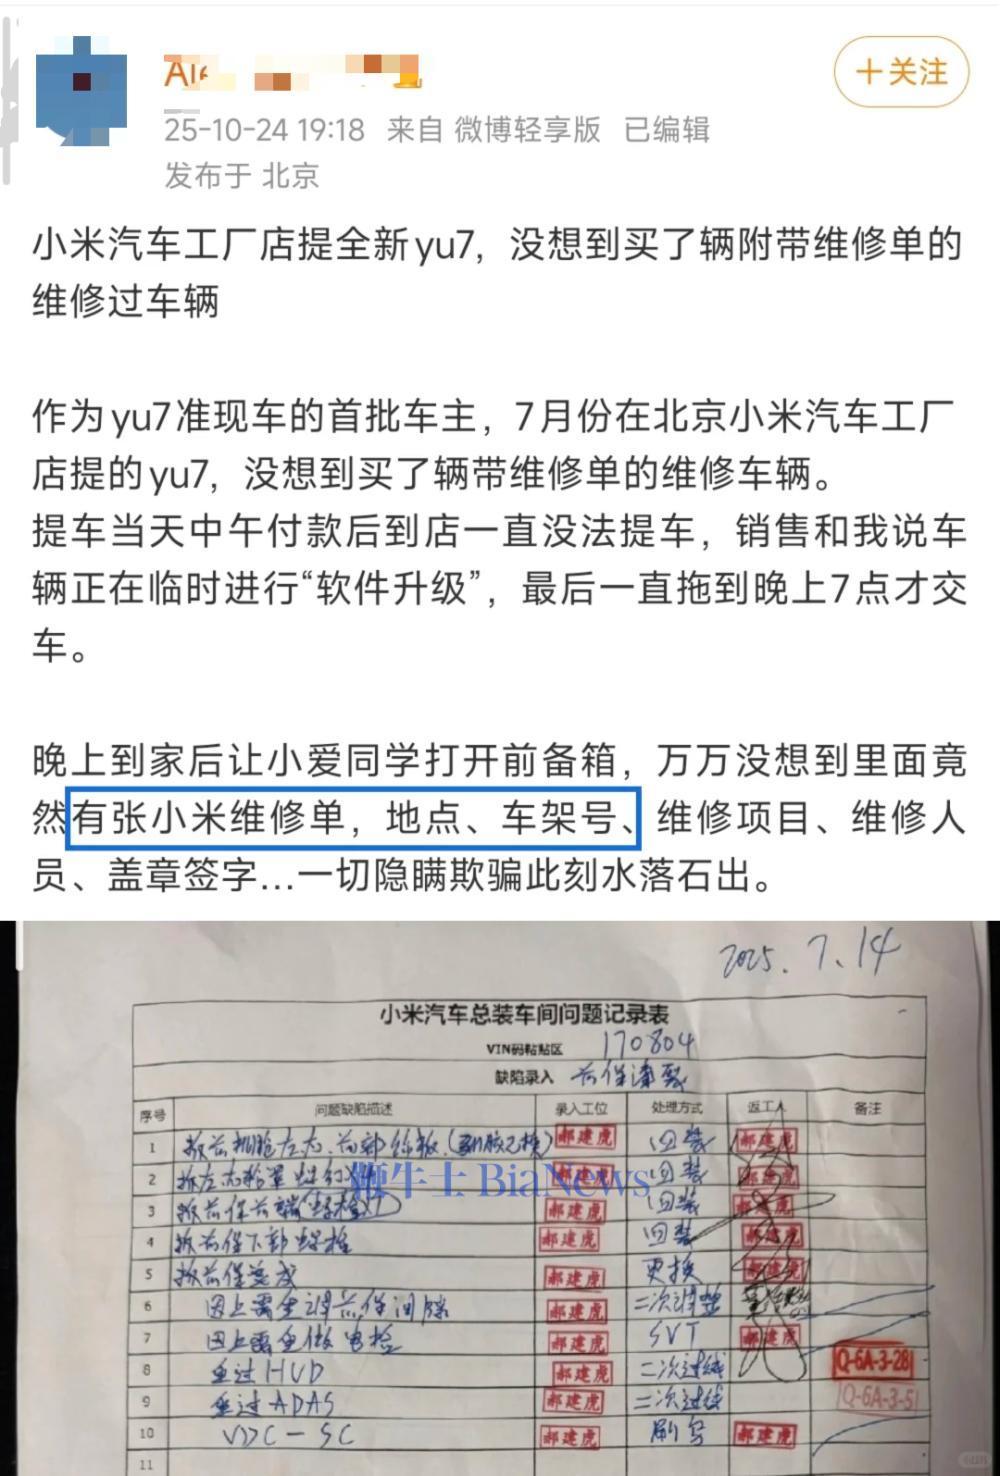 +关注
25-10-24 19:18 来自 微博轻享版 已编辑
发布于 北京
小米汽车工厂店提全新yu7，没想到买了辆附带维修单的
维修过车辆
作为yu7准现车的首批车主，7月份在北京小米汽车工厂
店提的yu7，没想到买了辆带维修单的维修车辆。
提车当天中午付款后到店一直没法提车，销售和我说车
辆正在临时进行“软件升级”，最后一直拖到晚上7点才交
车。
晚上到家后让小爱同学打开前备箱，万万没想到里面竟
然有张小米维修单，地点、车架号、维修项目、维修人
员、盖章签字...一切隐瞒欺骗此刻水落石出。
2025.7.14
小米汽车总装车间问题记录表
VIN码粘贴区 170804
缺陷录入 前保漆裂
序号 问题缺陷描述 录入工位 处理方式 返工人 备注
1 拆前机舱左右、前部饰板 郝建虎 回装 郝建虎
2 郝建虎 回装 郝建虎
鞭牛士 BiaNews
3 拆前保前端螺栓 郝建虎 回装 郝建虎
4 拆前保下部螺栓 郝建虎 回装 郝建虎
5 拆前保总成 郝建虎 更换 郝建虎
6 因上需重调前保间隙 郝建虎 二次调整
7 因上需重做电检 郝建虎 SVT 郝建虎
8 重过HUD 郝建虎 二次过线 Q-6A-3-28
9 重过ADAS 郝建虎 二次过线 Q-6A-3-5
10 VDC-SC 郝建虎 刷写 郝建虎
11